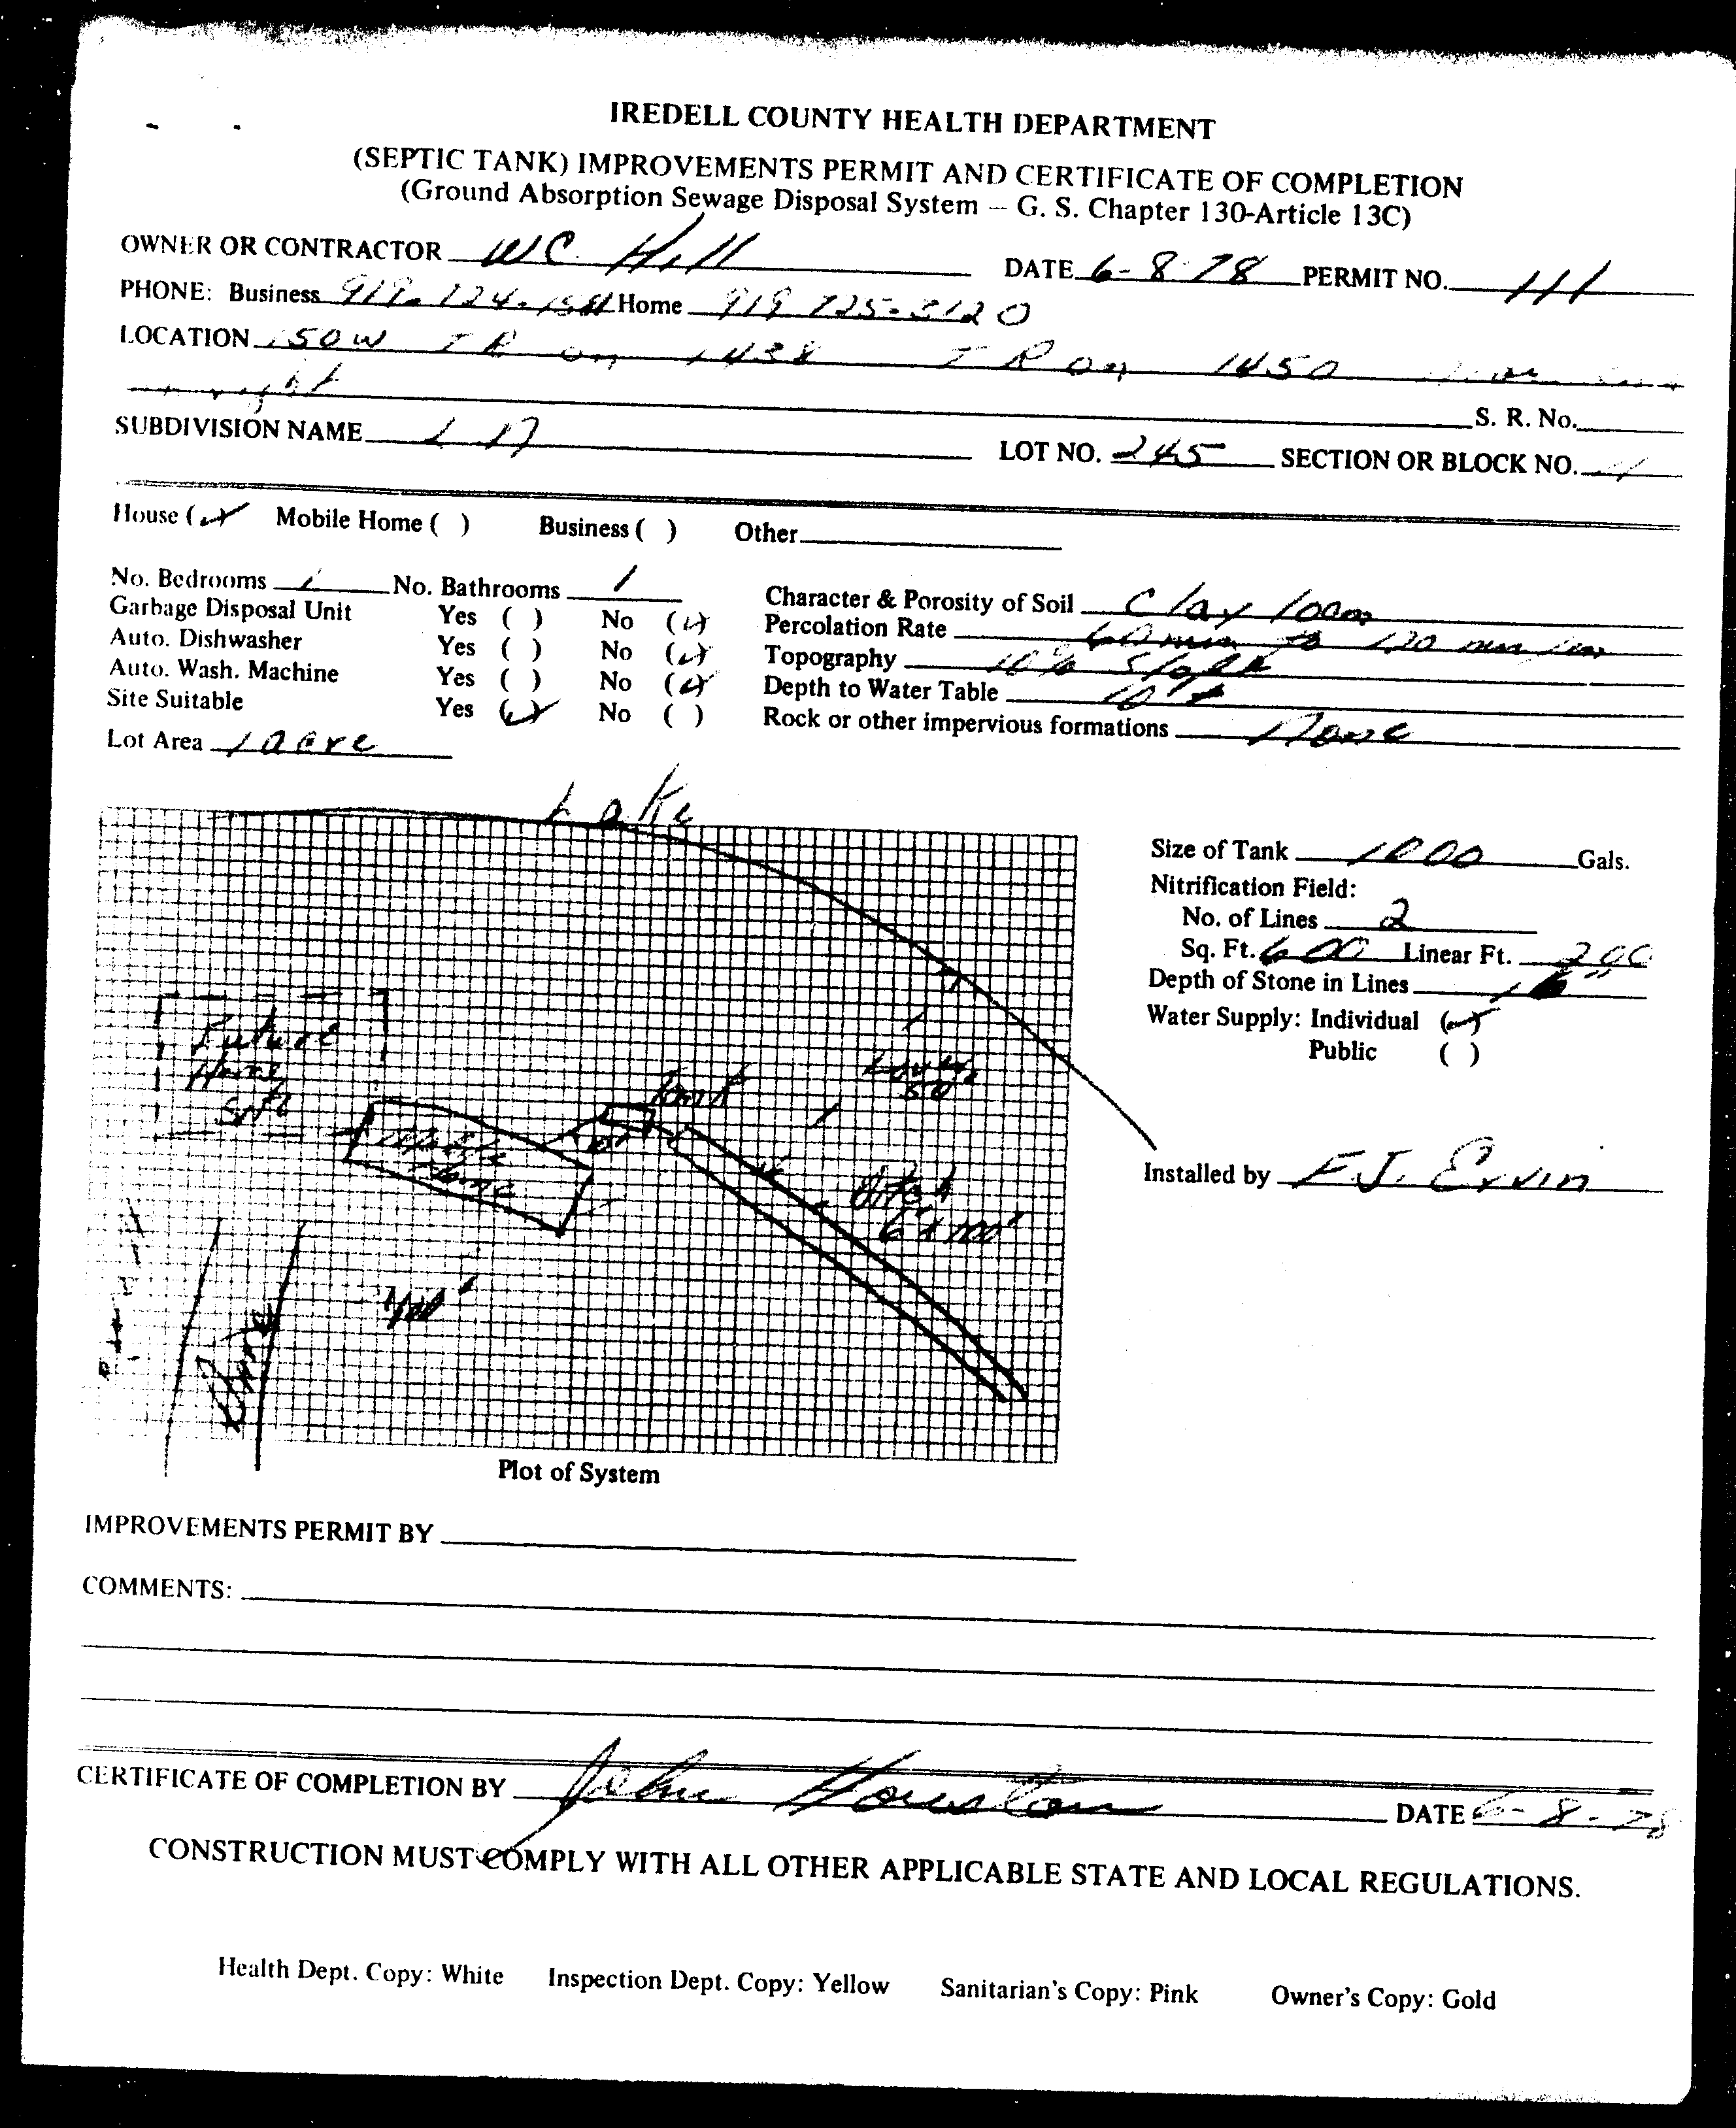 IREDELL COUNTY HEALTH DEPARTMENT
(SEPTIC TANK) IMPROVEMENTS PERMIT AND CERTIFICATE OF COMPLETION
(Ground Absorption Sewage Disposal System – G. S. Chapter 130-Article 13C)
OWNER OR CONTRACTOR WC Hill DATE 6-8-78 PERMIT NO. 111
PHONE: Business 919- Home 919 725-3120
LOCATION 150W TR on 1438 TR on 1450
on right
S. R. No.
SUBDIVISION NAME LOT NO. 245 SECTION OR BLOCK NO. 1
House (✓) Mobile Home ( ) Business ( ) Other
No. Bedrooms 1 No. Bathrooms 1 Character & Porosity of Soil Clay loam
Garbage Disposal Unit Yes ( ) No (✓) Percolation Rate 60 min to 120 min
Auto. Dishwasher Yes ( ) No (✓) Topography 10% Slope
Auto. Wash. Machine Yes ( ) No (✓) Depth to Water Table
Site Suitable Yes (✓) No ( ) Rock or other impervious formations None
Lot Area 1 acre
Lake
Size of Tank 1000 Gals.
Nitrification Field:
No. of Lines 2
Sq. Ft. 600 Linear Ft. 200
Depth of Stone in Lines
Water Supply: Individual (✓)
Public ( )
Future
Home
Site
Tank
50'
Mobile
Home
Ditch
Installed by F.J. Ervin
100'
Drive
Plot of System
IMPROVEMENTS PERMIT BY
COMMENTS:
CERTIFICATE OF COMPLETION BY John Houston DATE 6-8-78
CONSTRUCTION MUST COMPLY WITH ALL OTHER APPLICABLE STATE AND LOCAL REGULATIONS.
Health Dept. Copy: White Inspection Dept. Copy: Yellow Sanitarian's Copy: Pink Owner's Copy: Gold